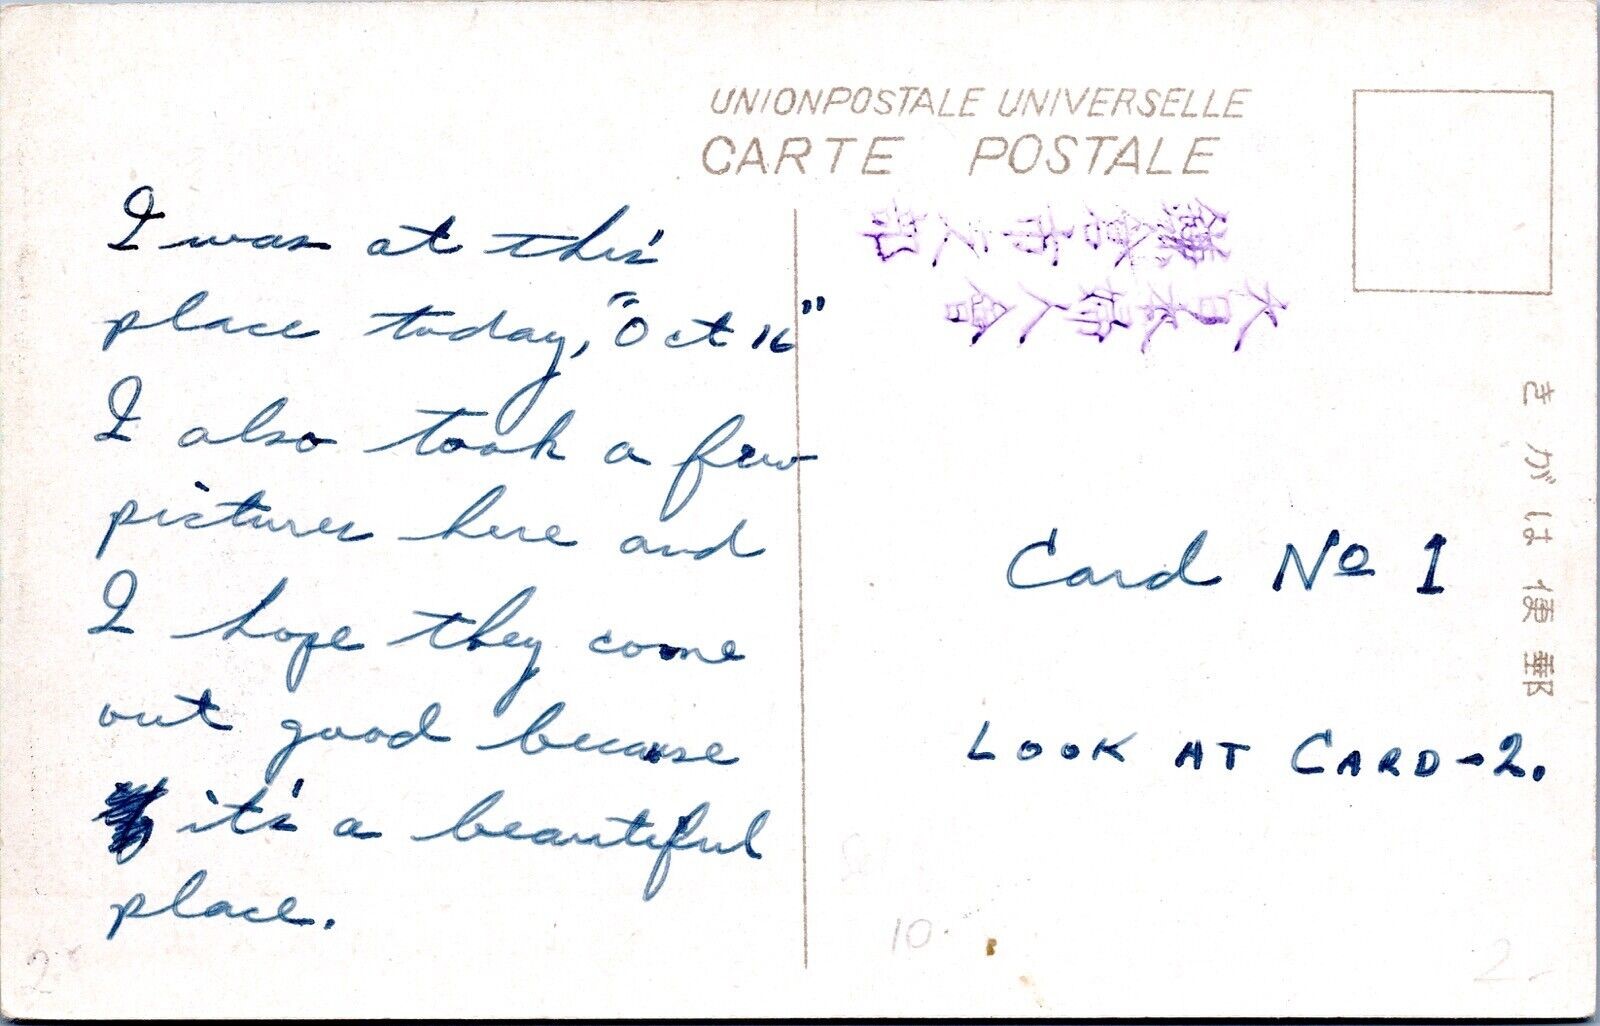 UNIONPOSTALE UNIVERSELLE
CARTE POSTALE
鎌倉市支部
大日本婦人會
郵便はがき
I was at this
place today, "Oct 16"
I also took a few
pictures here and
I hope they come
out good because
it's a beautiful
place.
Card No 1
LOOK AT CARD-2.
10
2
2